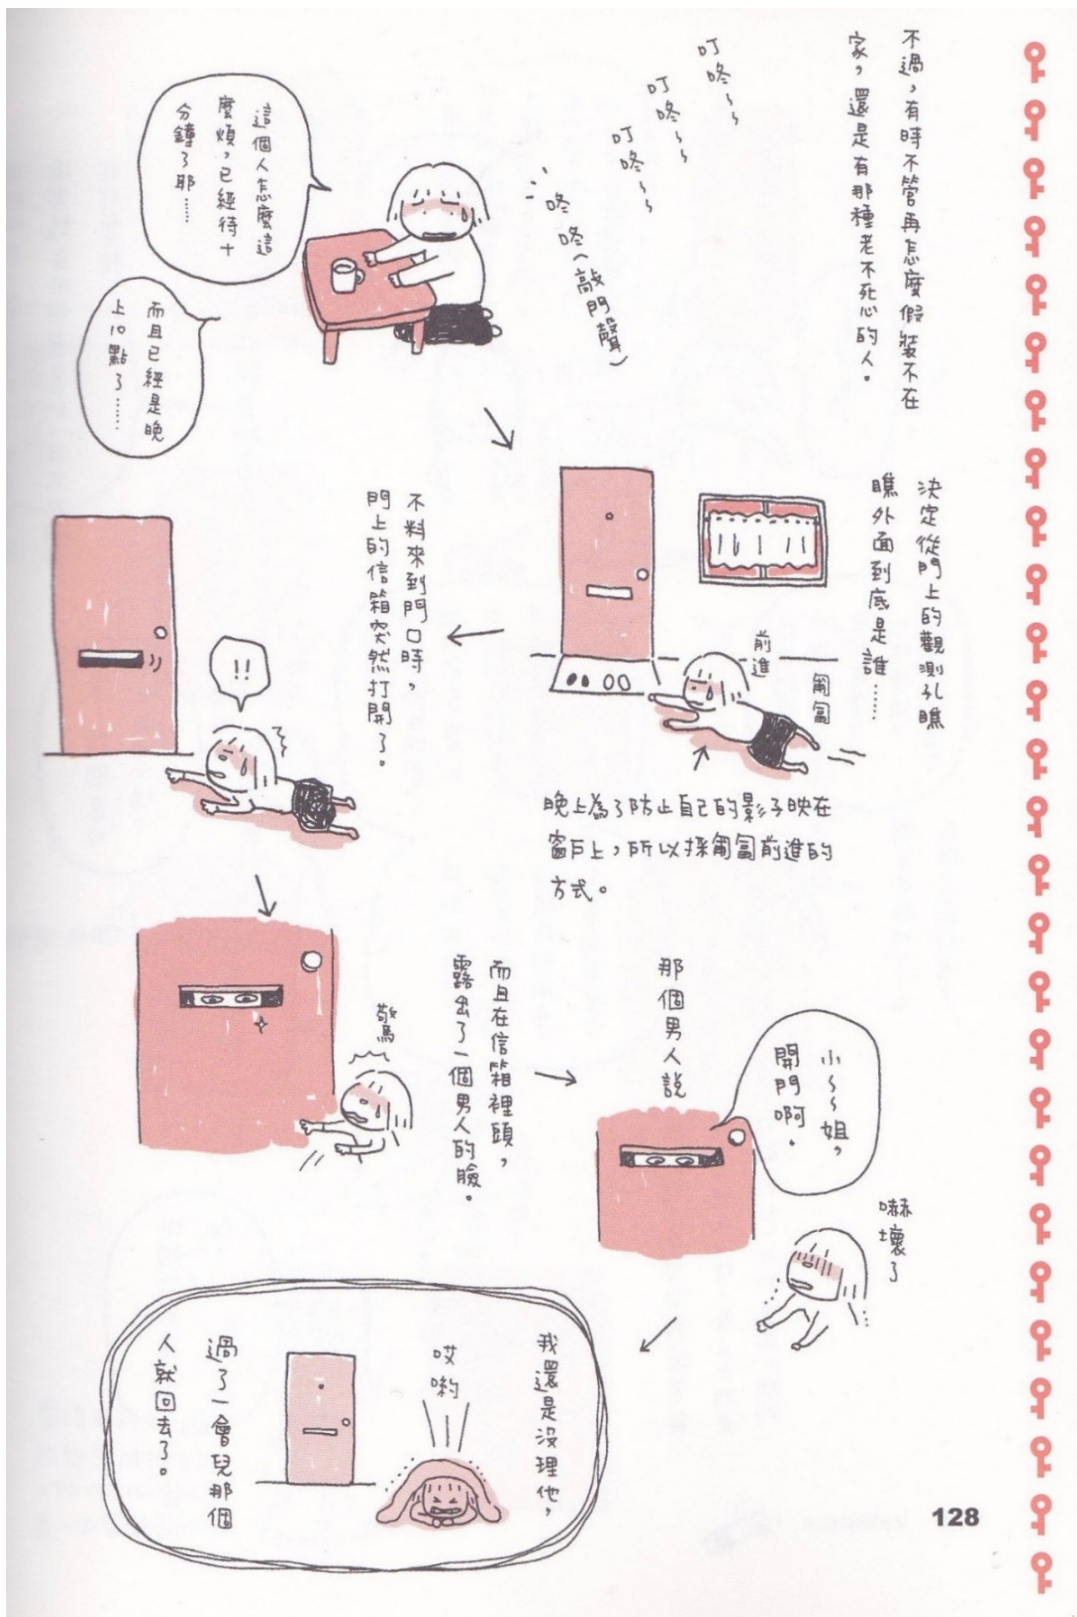 不過，有時不管再怎麼假裝不在
家，還是有那種老不死心的人。
叮咚～～
叮咚～～
叮咚～～
咚咚（敲門聲）
這個人怎麼這
麼煩，已經待十
分鐘了耶……
而且已經是晚
上10點了……
決定從門上的觀測孔瞧
瞧外面到底是誰……
匍匐
前進
晚上為了防止自己的影子映在
窗戶上，所以採匍匐前進的
方式。
不料來到門口時，
門上的信箱突然打開了。
!!
而且在信箱裡頭，
露出了一個男人的臉。
驚
那個男人說
小～～姐，
開門啊。
嚇壞了
我還是沒理他，
哎喲
過了一會兒那個
人就回去了。
128